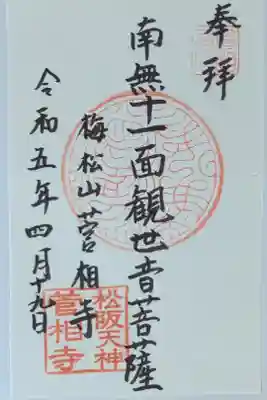 奉拝
南無十一面観世音菩薩
梅松山菅相寺
令和五年四月十九日
松阪天神
菅相寺